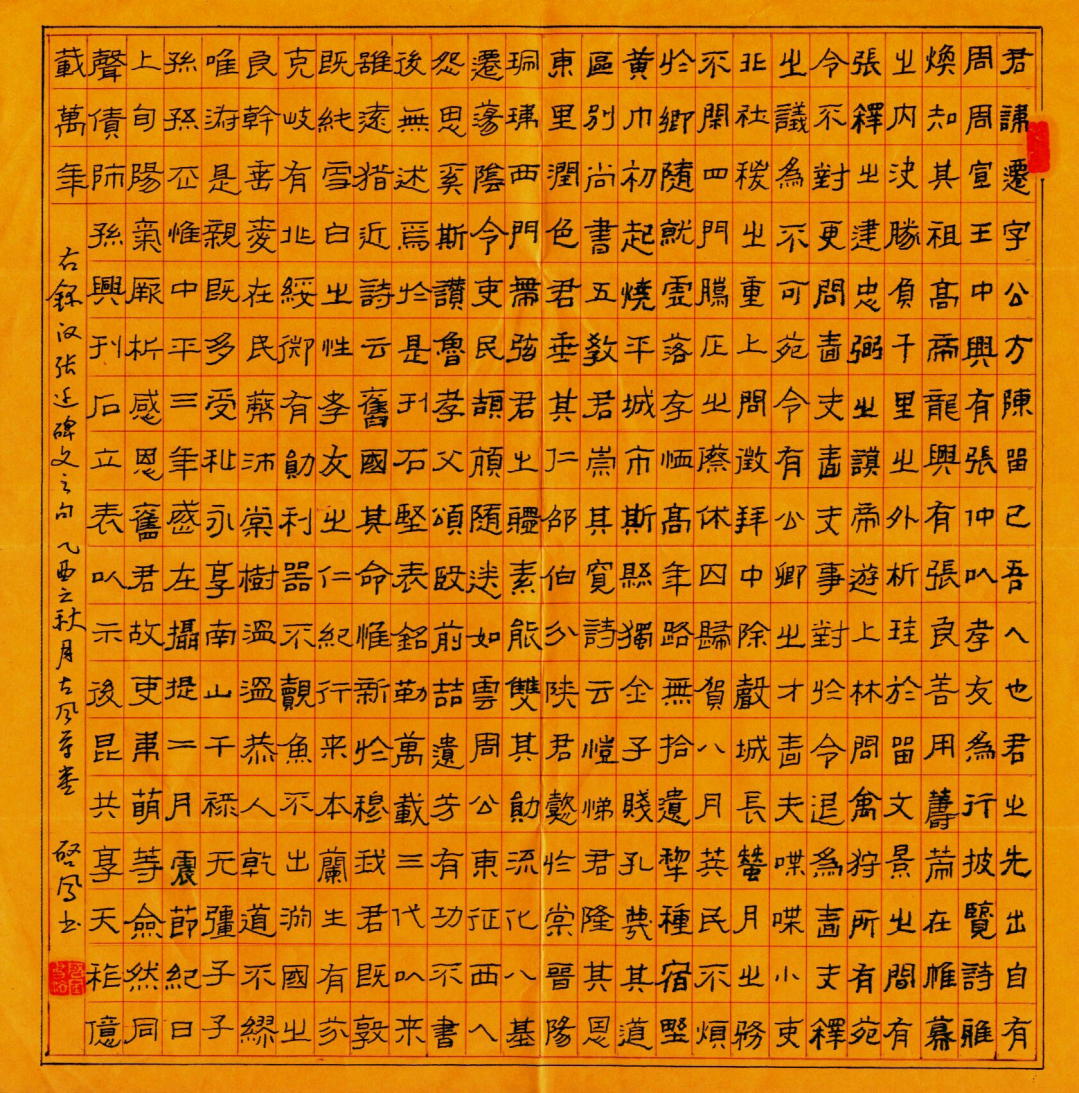 君諱遷字公方陳留己吾人也君之先出自有
周周宣王中興有張仲以孝友為行披覽詩雅
煥知其祖高帝龍興有張良善用籌策在帷幕
之內決勝負千里之外析珪於留文景之間有
張釋之建忠弼之謨帝遊上林問禽狩所有苑
令不對更問嗇夫嗇夫事對於令退為嗇夫釋
之議為不可苑令有公卿之才嗇夫喋喋小吏
非社稷之重上問徵拜中除穀城長蠶月之務
不閉四門臘正之祭休囚歸賀八月英民不煩
於鄉隨就虛落存恤高年路無拾遺犁種宿野
黃巾初起燒平城市斯縣獨全子賤孔蔑其道
區別尚書五教君崇其寬詩云愷悌君隆其恩
東里潤色君垂其仁邵伯分陝君懿於棠晉陽
珮瑋西門帶弦君之體素能雙其勛流化八基
遷蕩陰令吏民頡頏隨送如雲周公東征西人
怨思奚斯讚魯孝父頌殷前喆遺芳有功不書
後無述焉於是刊石堅表銘勒萬載三代以来
雖遠猶近詩云舊國其命惟新於穆我君既敦
既純雪白之性孝友之仁紀行来本蘭生有芬
克岐有兆綏御有勛利器不覿魚不出淵國之
良幹垂愛在民蔽沛棠樹溫溫恭人乾道不繆
唯淑是親既多受祉永享南山干祿无疆子子
孫孫丕惟中平三年歲在攝提二月震節紀日
上旬陽氣厥析感恩舊君故吏韋萌等僉然同
聲賃師孫興刊石立表以示後昆共享天祚億
載萬年
右錄汉张迁碑文之句 乙酉之秋月古风草堂 啓风书